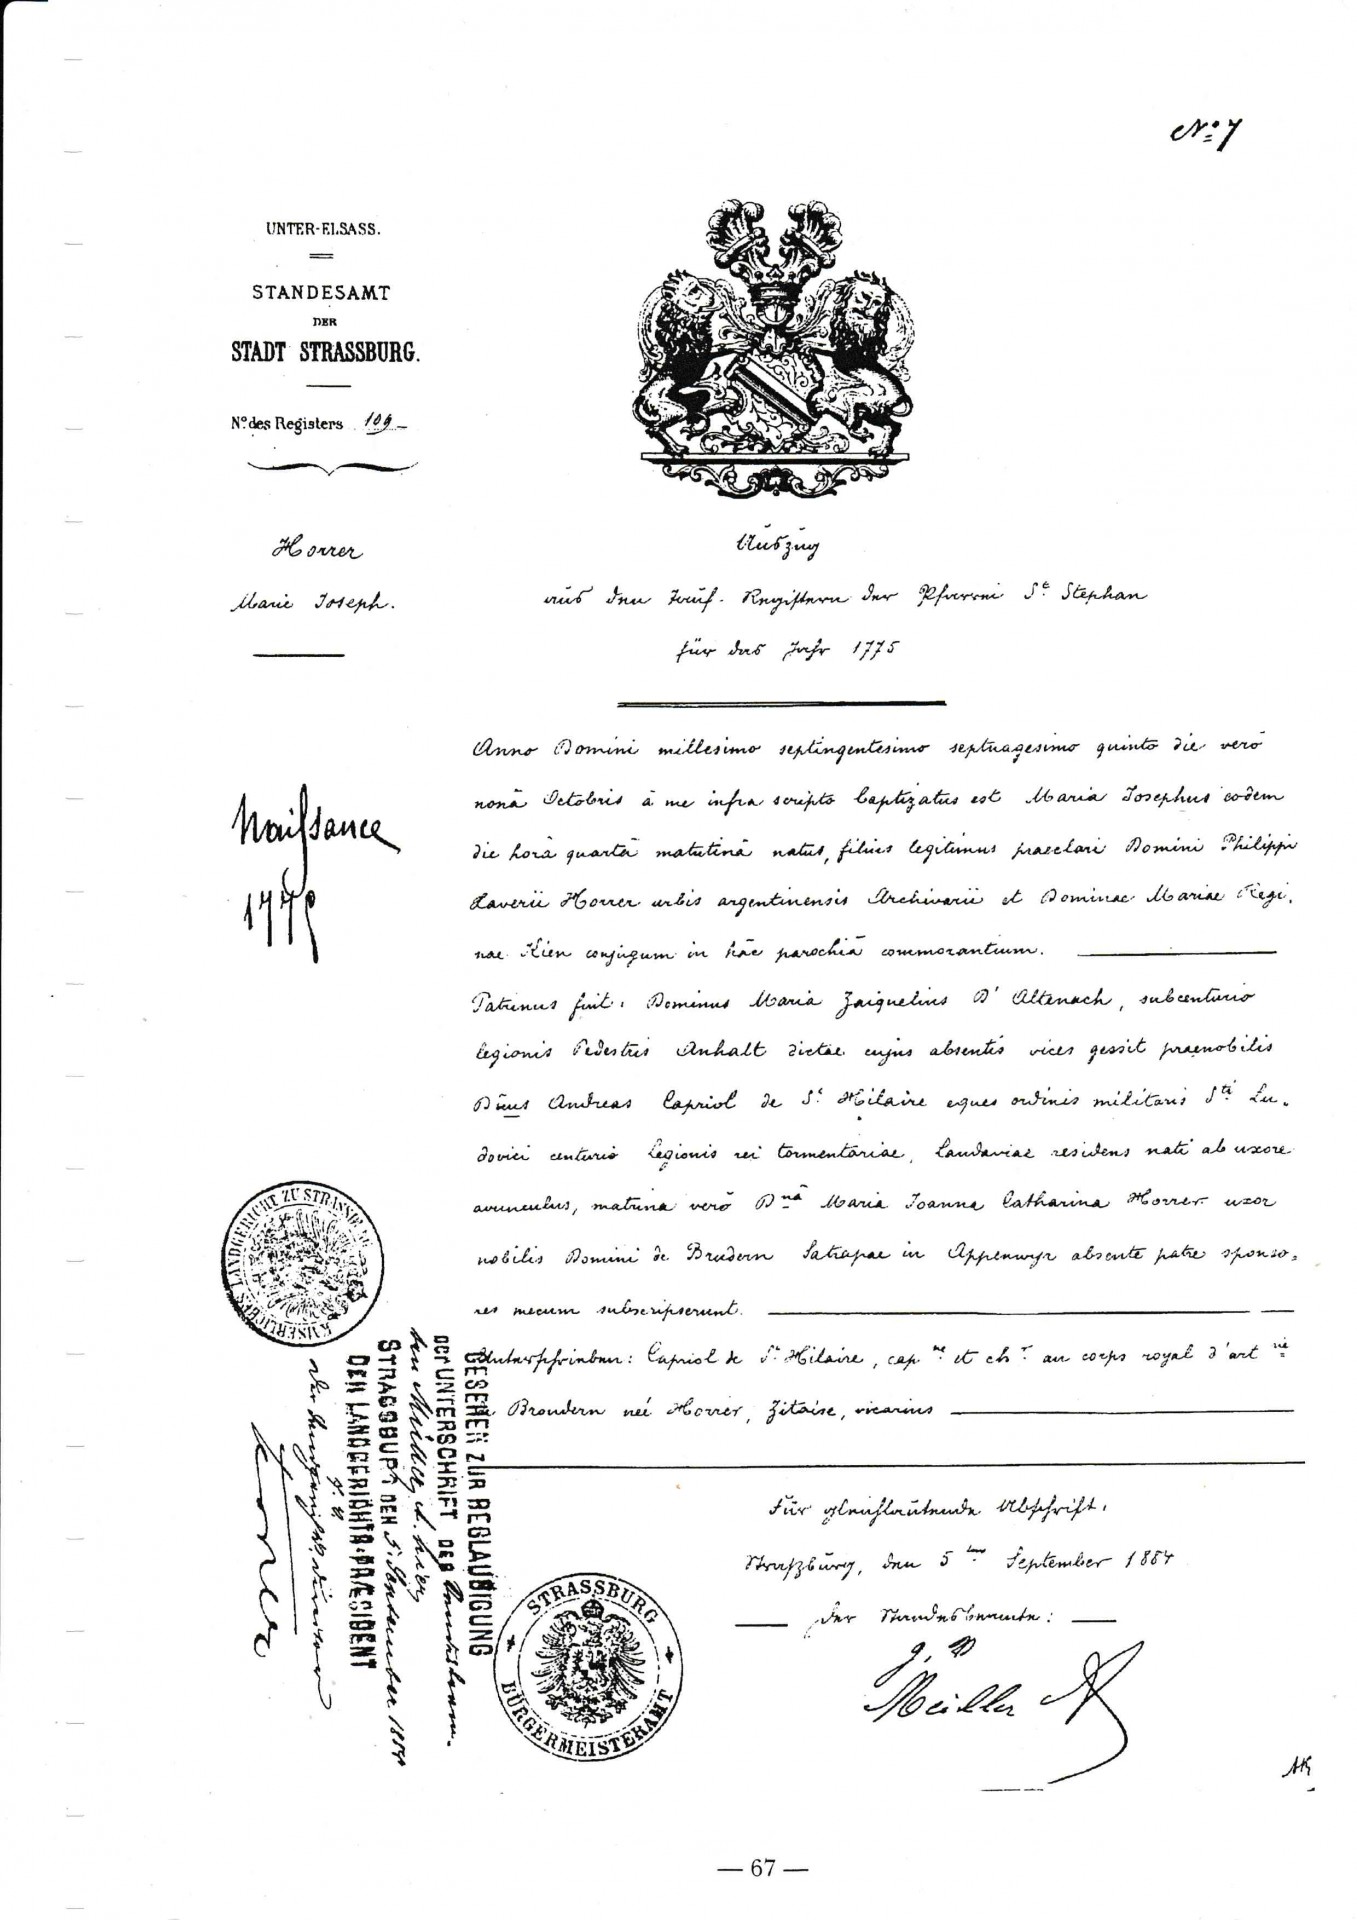 No: 7
UNTER-ELSASS.
STANDESAMT
DER
STADT STRASSBURG.
No. des Registers 109
Horrer
Marie Joseph.
Auszug
aus den Tauf-Registern der Pfarrei St. Stephan
für das Jahr 1775
Naissance
1775
Anno Domini millesimo septingentesimo septuagesimo quinto die verò
nonâ Octobris â me infra scripto baptizatus est Maria Josephus eodem
die horâ quartâ matutinâ natus, filius legitimus praeclari Domini Philippi
Xaverii Horrer urbis argentinensis Archivarii et Dominae Mariae Regi-
nae Kien conjugum in hâc parochiâ commorantium.
Patrinus fuit: Dominus Maria Zaiguelius D'Altenach, subcenturio
legionis Pedestris Anhalt dictae cujus absentis vices gessit praenobilis
Dñus Andreas Capriol de St Hilaire eques ordinis militaris Sti Lu-
dovici centurio legionis rei tormentariae, Landaviae residens nati ab uxore
avunculus, matrina verò Dna Maria Joanna Catharina Horrer uxor
nobilis Domini de Brudern Satrapae in Appenwyr absente patre sponso-
res mecum subscripserunt.
Unterschrieben: Capriol de St Hilaire, capne et chr au corps royal d'artrie
Broudern neé Horrer, Zitaise, vicarius
Für gleichlautende Abschrift.
Straßburg, den 5ten September 1884
Der Standesbeamte:
Müller
KAISERLICHES LANDGERICHT ZU STRASSBURG
GESEHEN ZUR BEGLAUBIGUNG
DER UNTERSCHRIFT DES
Müller
STRASSBURG DEN 5. September 1884
DER LANDGERICHTS-PRÆSIDENT
STRASSBURG
BÜRGERMEISTERAMT
— 67 —